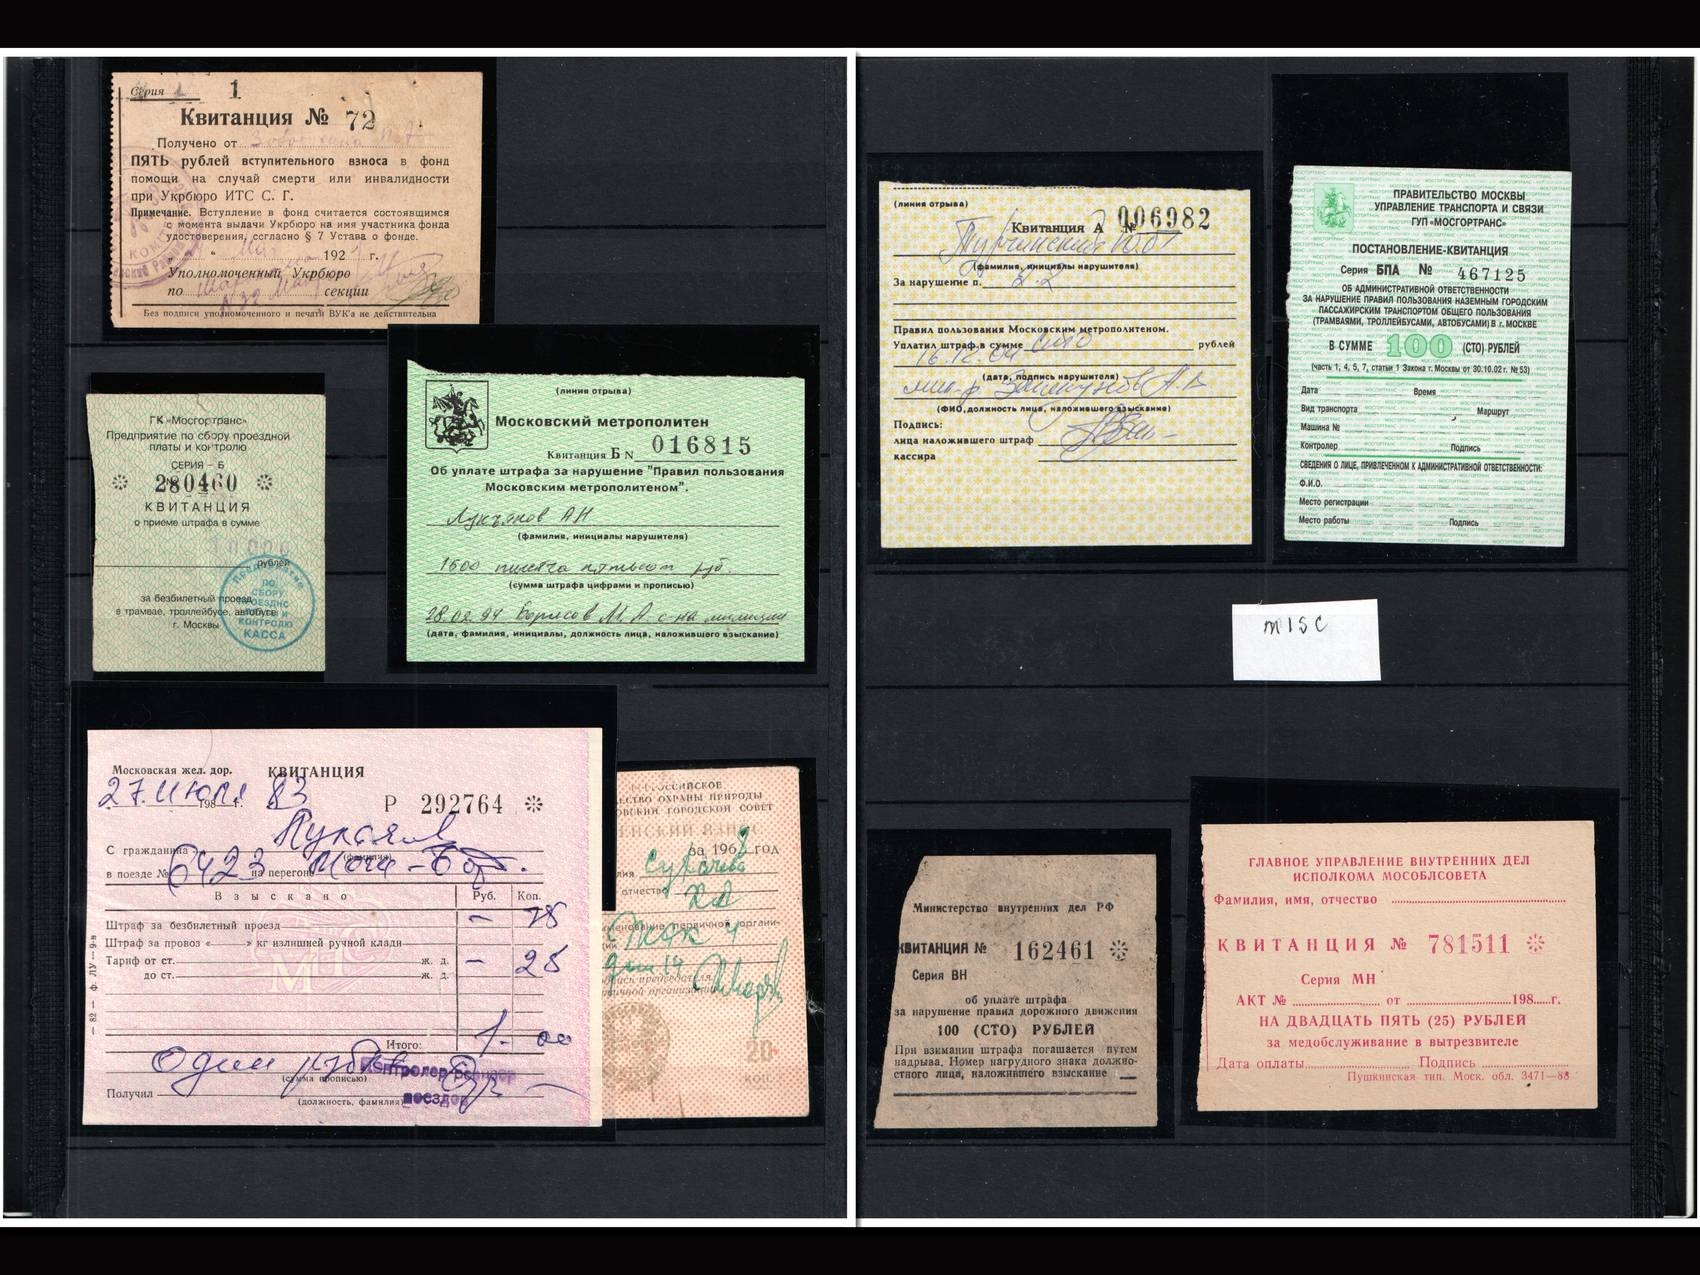 Серия 1
1
Квитанция № 72
Получено от
ПЯТЬ рублей вступительного взноса в фонд
помощи на случай смерти или инвалидности
при Укрбюро ИТС С. Г.
Примечание. Вступление в фонд считается состоявшимся
с момента выдачи Укрбюро на имя участника фонда
удостоверения, согласно § 7 Устава о фонде.
192 г.
Уполномоченный Укрбюро
по секции
Без подписи уполномоченного и печати ВУК'а не действительна
ГК «Мосгортранс»
Предприятие по сбору проездной
платы и контролю
СЕРИЯ – Б
280460
КВИТАНЦИЯ
о приеме штрафа в сумме
рублей
за безбилетный проезд
в трамвае, троллейбусе, автобусе
г. Москвы
ПО
СБОРУ
КОНТРОЛЮ
КАССА
(линия отрыва)
Московский метрополитен
Квитанция Б N 016815
Об уплате штрафа за нарушение "Правил пользования
Московским метрополитеном".
Лукьянов АН
(фамилия, инициалы нарушителя)
1500 тысяча пятьсот руб.
(сумма штрафа цифрами и прописью)
28.02.94 Борисов М.А. с-на милиции
(дата, фамилия, инициалы, должность лица, наложившего взыскание)
Московская жел. дор. КВИТАНЦИЯ
27 июля 198 г. 83
Р 292764
С гражданина
(фамилия)
в поезде № 6423 на перегоне
Взыскано Руб. Коп.
Штраф за безбилетный проезд – 75
Штраф за провоз «—» кг излишней ручной клади
Тариф от ст. ж. д. – 25
до ст. ж. д.
Итого: 1 - 00
Один рубль
(сумма прописью)
Контролер-ревизор
поездов
Получил
(должность, фамилия)
— 82 — Ф. ЛУ — 9-в
РОССИЙСКОЕ
ОХРАНЫ ПРИРОДЫ
ГОРОДСКОЙ СОВЕТ
ЧЛЕНСКИЙ ВЗНОС
за 196 год
Сухачева
отчество
первичной органи-
председателя
первичной организации
20
(линия отрыва)
Квитанция А № 006982
(фамилия, инициалы нарушителя)
За нарушение п. 2.2
Правил пользования Московским метрополитеном.
Уплатил штраф в сумме сто рублей
16.12.04
(дата, подпись нарушителя)
(ФИО, должность лица, наложившего взыскание)
Подпись:
лица наложившего штраф
кассира
ПРАВИТЕЛЬСТВО МОСКВЫ
УПРАВЛЕНИЕ ТРАНСПОРТА И СВЯЗИ
ГУП «МОСГОРТРАНС»
ПОСТАНОВЛЕНИЕ-КВИТАНЦИЯ
Серия БПА № 467125
ОБ АДМИНИСТРАТИВНОЙ ОТВЕТСТВЕННОСТИ
ЗА НАРУШЕНИЕ ПРАВИЛ ПОЛЬЗОВАНИЯ НАЗЕМНЫМ ГОРОДСКИМ
ПАССАЖИРСКИМ ТРАНСПОРТОМ ОБЩЕГО ПОЛЬЗОВАНИЯ
(ТРАМВАЯМИ, ТРОЛЛЕЙБУСАМИ, АВТОБУСАМИ) В г. МОСКВЕ
В СУММЕ 100 (СТО) РУБЛЕЙ
(часть 1, 4, 5, 7, статьи 1 Закона г. Москвы от 30.10.02 г. № 53)
Дата Время
Вид транспорта Маршрут
Машина №
Контролер Подпись
СВЕДЕНИЯ О ЛИЦЕ, ПРИВЛЕЧЕННОМ К АДМИНИСТРАТИВНОЙ ОТВЕТСТВЕННОСТИ:
Ф.И.О.
Место регистрации
Место работы Подпись
MISC
Министерство внутренних дел РФ
КВИТАНЦИЯ № 162461
Серия ВН
об уплате штрафа
за нарушение правил дорожного движения
100 (СТО) РУБЛЕЙ
При взимании штрафа погашается путем
надрыва. Номер нагрудного знака должно-
стного лица, наложившего взыскание
ГЛАВНОЕ УПРАВЛЕНИЕ ВНУТРЕННИХ ДЕЛ
ИСПОЛКОМА МОСОБЛСОВЕТА
Фамилия, имя, отчество
КВИТАНЦИЯ № 781511
Серия МН
АКТ № от 198 г.
НА ДВАДЦАТЬ ПЯТЬ (25) РУБЛЕЙ
за медобслуживание в вытрезвителе
Дата оплаты Подпись
Пушкинская тип. Моск. обл. 3471—88